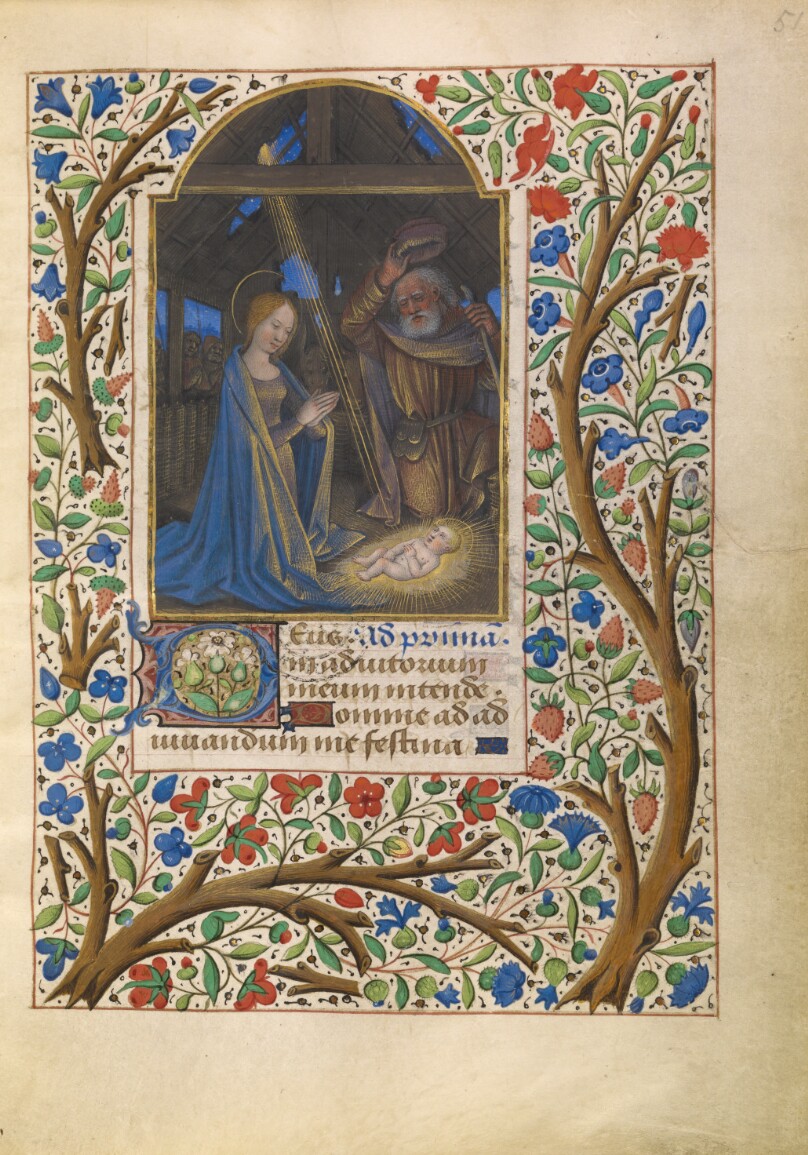 51
Deus. Ad primā.
in adiutorium
meum intende.
Domine ad ad
iuuandum me festina